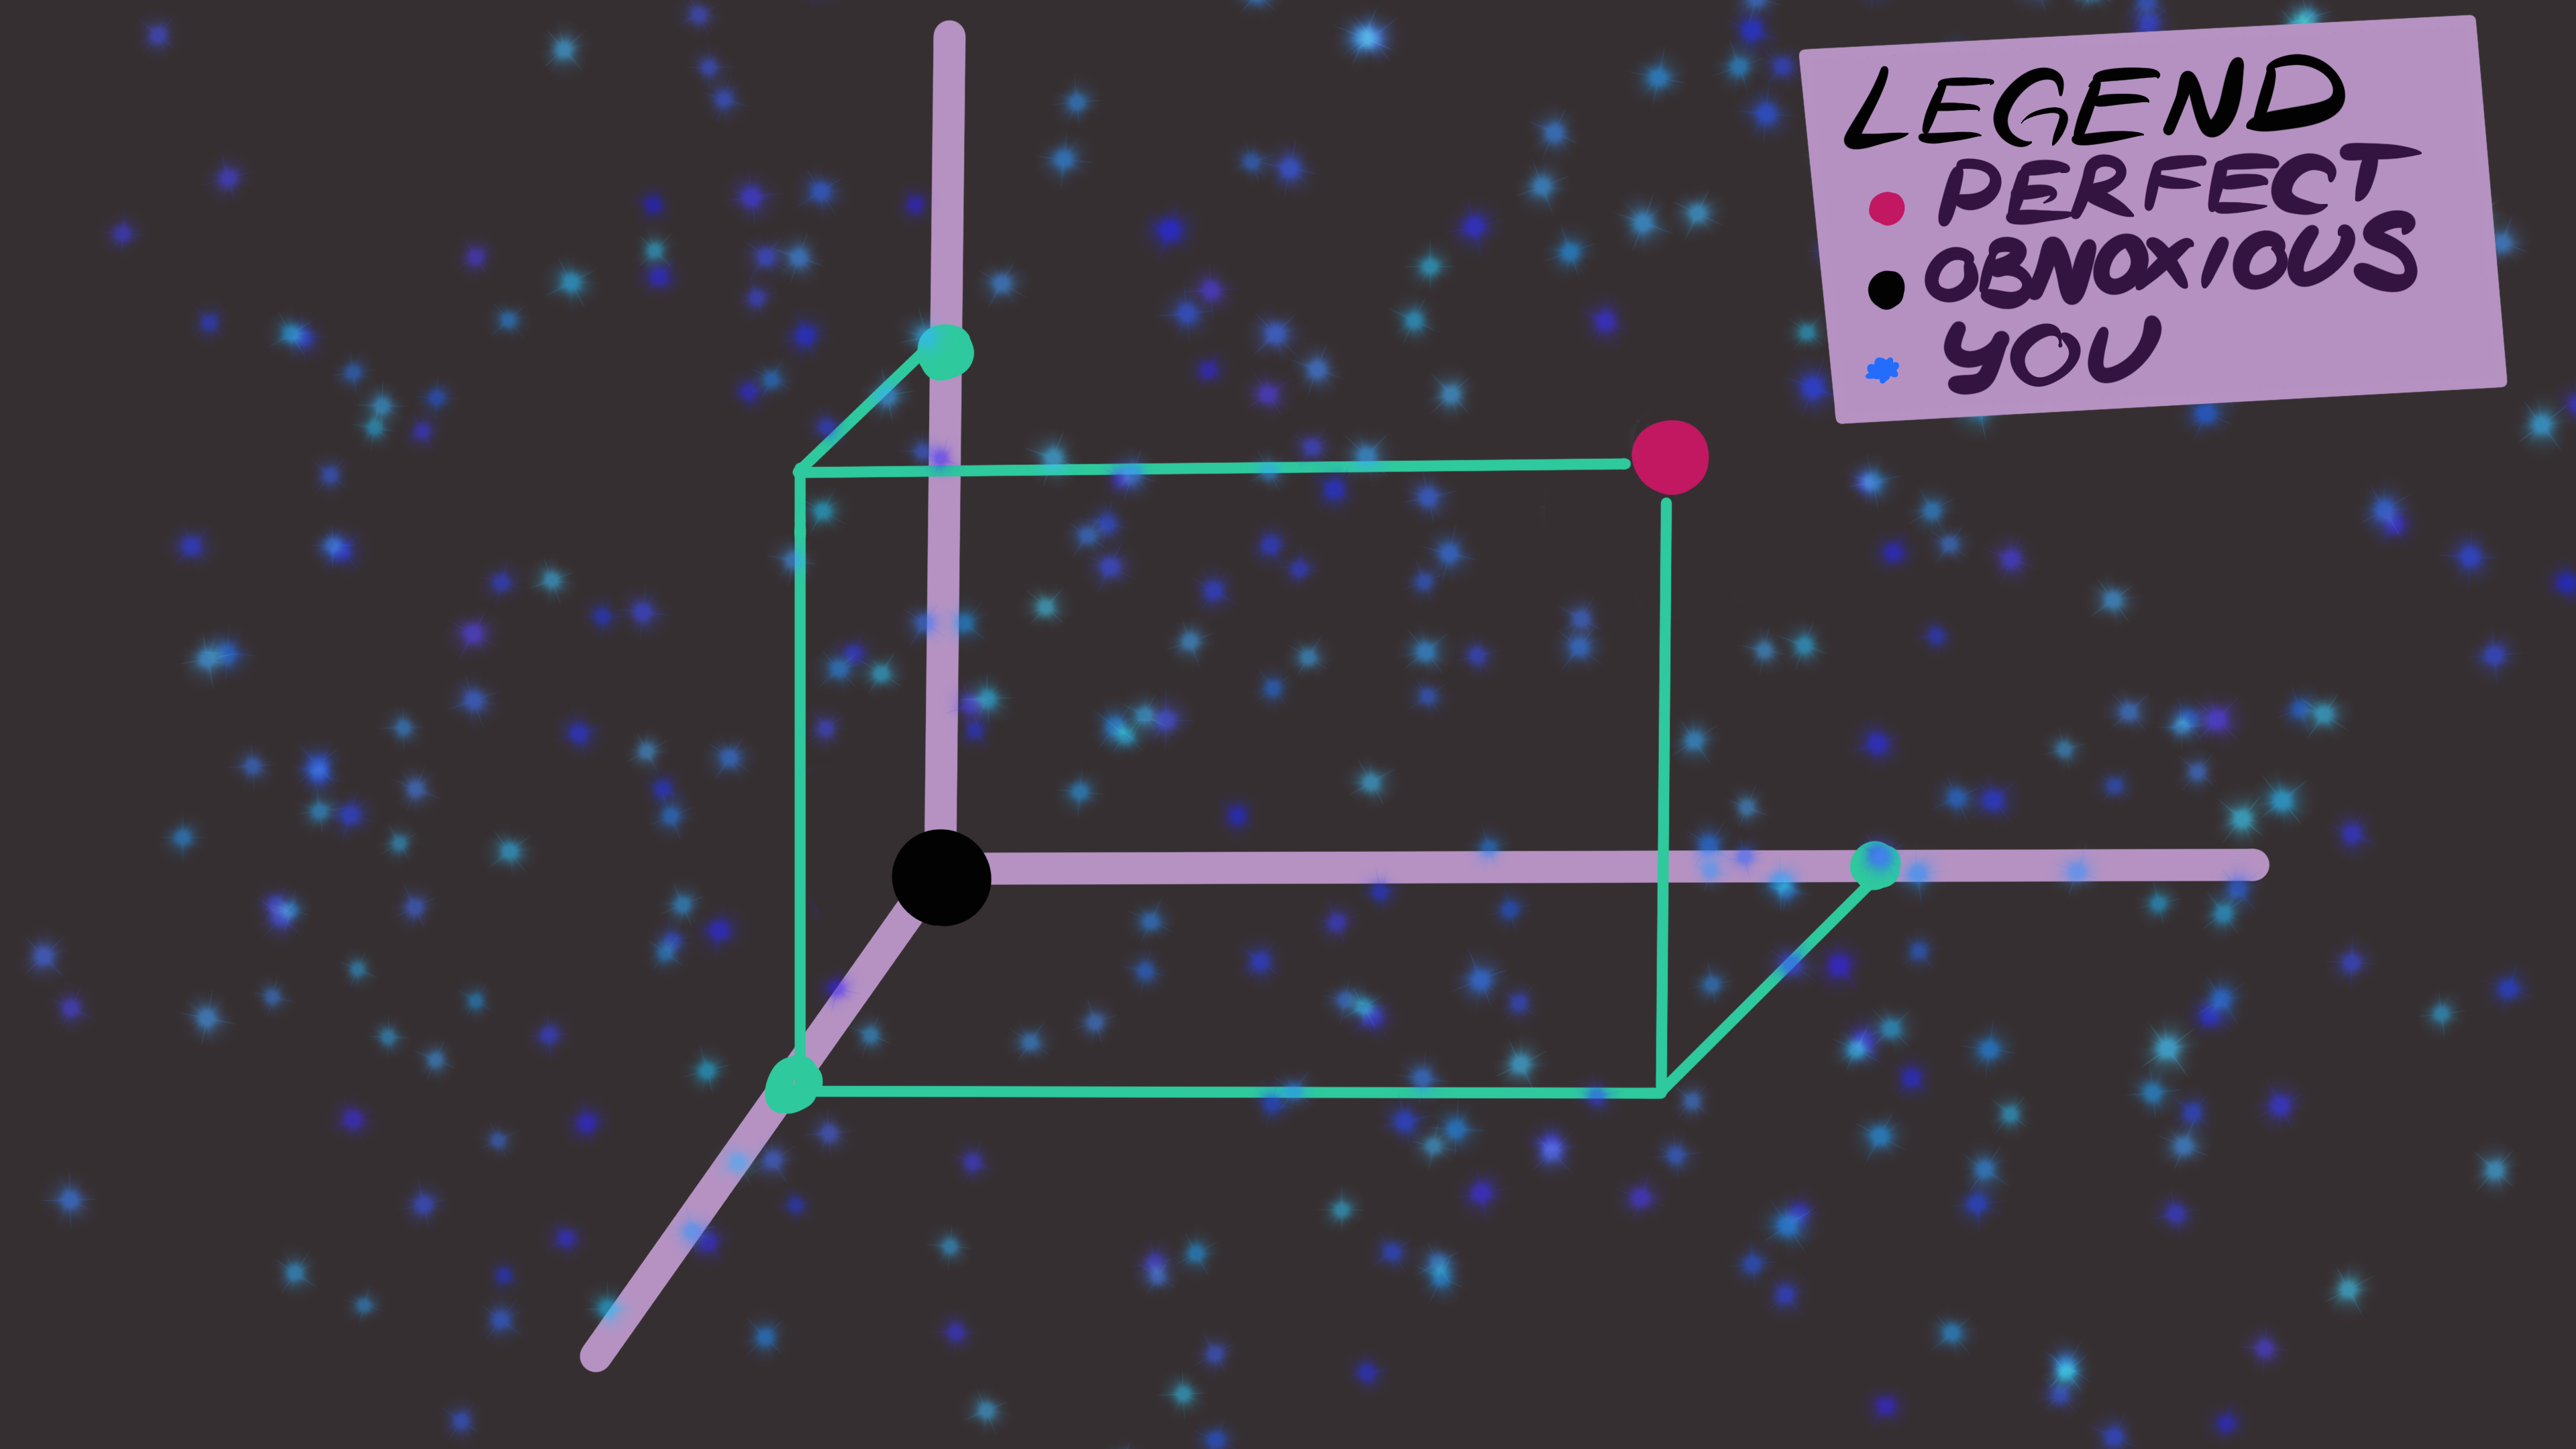 LEGEND
PERFECT
OBNOXIOUS
YOU